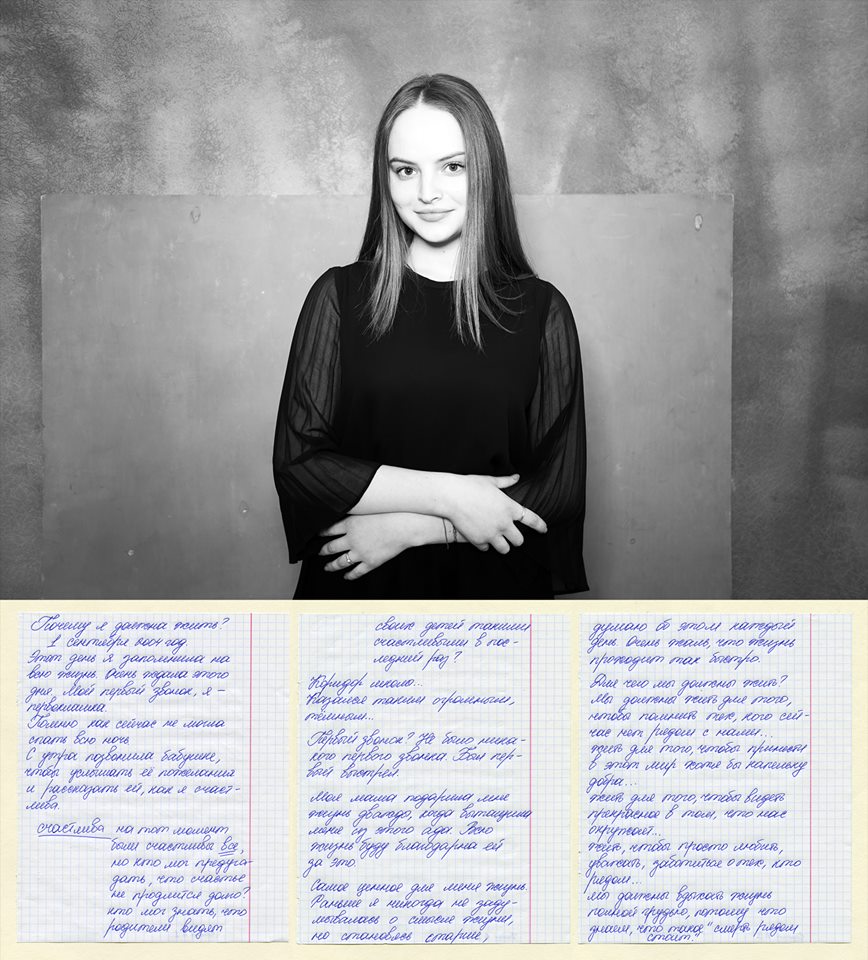 Почему я должна жить?
1 сентября 2004 год.
Этот день я запомнила на
всю жизнь. Очень ждала этого
дня. Мой первый звонок, я –
первоклашка.
Помню как сейчас не могла
спать всю ночь.
С утра позвонила бабушке,
чтобы услышать её пожелания
и рассказать ей, как я счаст-
лива.
счастлива на тот момент
были счастливы все,
но кто мог предуга-
дать, что счастье
не продлится долго?
кто мог знать, что
родители видят
своих детей такими
счастливыми в пос-
ледний раз?
Коридор школы...
Казался таким огромным,
тёмным...
Первый звонок? Не было ника-
кого первого звонка. Был пер-
вый выстрел.
Моя мама подарила мне
жизнь дважды, когда вытащила
меня из этого ада. Всю
жизнь буду благодарна ей
за это.
Самое ценное для меня жизнь.
Раньше я никогда не заду-
мывалась о смысле жизни,
но становясь старше,
думаю об этом каждый
день. Очень жаль, что жизнь
проходит так быстро.
Для чего мы должны жить?
Мы должны жить для того,
чтобы помнить тех, кого сей-
час нет рядом с нами...
жить для того, чтобы принести
в этот мир хотя бы капельку
добра...
жить для того, чтобы видеть
прекрасное в том, что нас
окружает...
жить, чтобы просто любить,
уважать, заботиться о тех, кто
рядом...
мы должны вдыхать жизнь
полной грудью, потому что
знаем, что такое "смерть рядом
стоит."